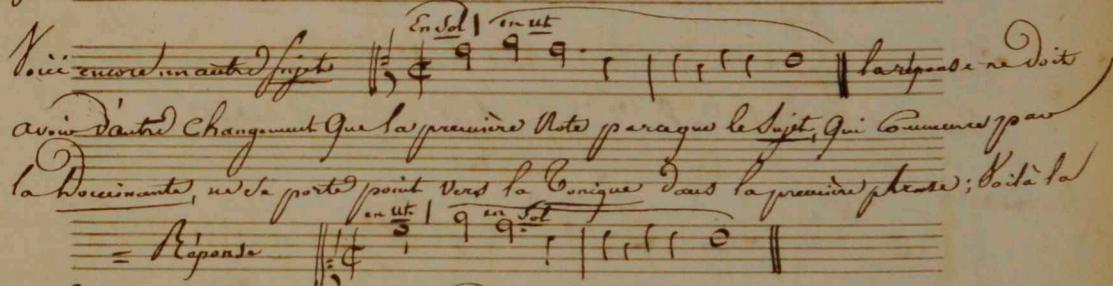 En Sol | en ut
Voici encore un autre Sujet la réponse ne doit
avoir d'autre Changement Que la première Note parceque le Sujet, Qui Commence par
la Dominante, ne se porte point vers la Tonique dans la première phrase; Voilà la
en ut | en Sol
= Réponse